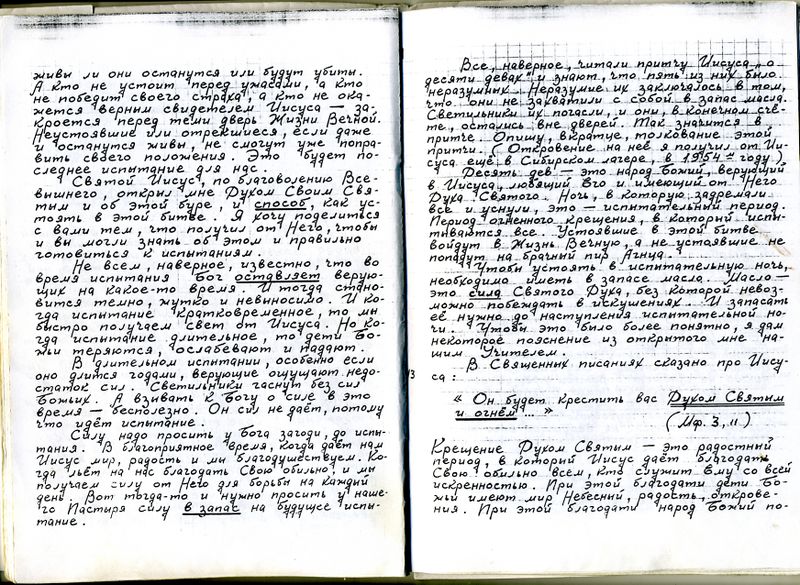 живы ли они останутся или будут убиты.
А кто не устоит перед ужасами, а кто
не победит своего страха, а кто не ока-
жется верным свидетелем Иисуса — за-
кроется перед теми дверь Жизни Вечной.
Неустоявшие или отрекшиеся, если даже
и останутся живы, не смогут уже попра-
вить своего положения. Это будет по-
следнее испытание для нас.
Святой Иисус, по благоволению Все-
вышнего, открыл мне Духом Своим Свя-
тым и об этой буре, и способ, как ус-
тоять в этой битве. Я хочу поделиться
с вами тем, что получил от Него, чтобы
и вы могли знать об этом и правильно
готовиться к испытаниям.
Не всем, наверное, известно, что во
время испытания Бог оставляет верую-
щих на какое-то время. И тогда стано-
вится темно, жутко и невыносимо. И ко-
гда испытание кратковременное, то мы
быстро получаем свет от Иисуса. Но ко-
гда испытание длительное, то дети Бо-
жьи теряются, ослабевают и падают.
В длительном испытании, особенно если
оно длится годами, верующие ощущают недо-
статок сил. Светильники гаснут без сил
Божьих. А взывать к Богу о силе в это
время — бесполезно. Он сил не даёт, потому
что идёт испытание.
Силу надо просить у Бога загоди, до испы-
тания. В благоприятное время, когда даёт нам
Иисус мир, радость и мы благодушествуем. Ко-
гда льёт на нас благодать Свою обильно, и мы
получаем силу от Него для борьбы на каждый
день. Вот тогда-то и нужно просить у наше-
го Пастыря силу в запас на будущее испы-
тание.
Все, наверное, читали притчу Иисуса „о
десяти девах“ и знают, что пять из них было
неразумных. Неразумие их заключалось в том,
что они не захватили с собой в запас масла.
Светильники их погасли, и они, в конечном счё-
те, остались вне дверей. Так значится в
притче. Опишу, вкратце, толкование этой
притчи. (Откровение на неё я получил от Ии-
суса ещё в Сибирском лагере, в 1954-м году.)
Десять дев — это народ Божий, верующий
в Иисуса, любящий Его и имеющий от Него
Духа Святого. Ночь, в которую задремали
все и уснули, это — испытательный период.
Период огненного крещения, в который испы-
тываются все. Устоявшие в этой битве
войдут в Жизнь Вечную, а не устоявшие не
попадут на брачный пир Агнца.
Чтобы устоять в испытательную ночь,
необходимо иметь в запасе масла. Масло —
это сила Святого Духа, без которой невоз-
можно побеждать в искушениях. И запасать
её нужно до наступления испытательной но-
чи. Чтобы это было более понятно, я дам
некоторое пояснение из открытого мне на-
шим Учителем.
В Священных писаниях сказано про Иису-
са:
« Он будет крестить вас Духом Святым
и огнём ... »
(Мф. 3, 11)
Крещение Духом Святым — это радостный
период, в который Иисус даёт благодать
Свою обильно всем, кто служит Ему со всей
искренностью. При этой благодати дети Бо-
жьи имеют мир Небесный, радость, открове-
ния. При этой благодати народ Божий по-